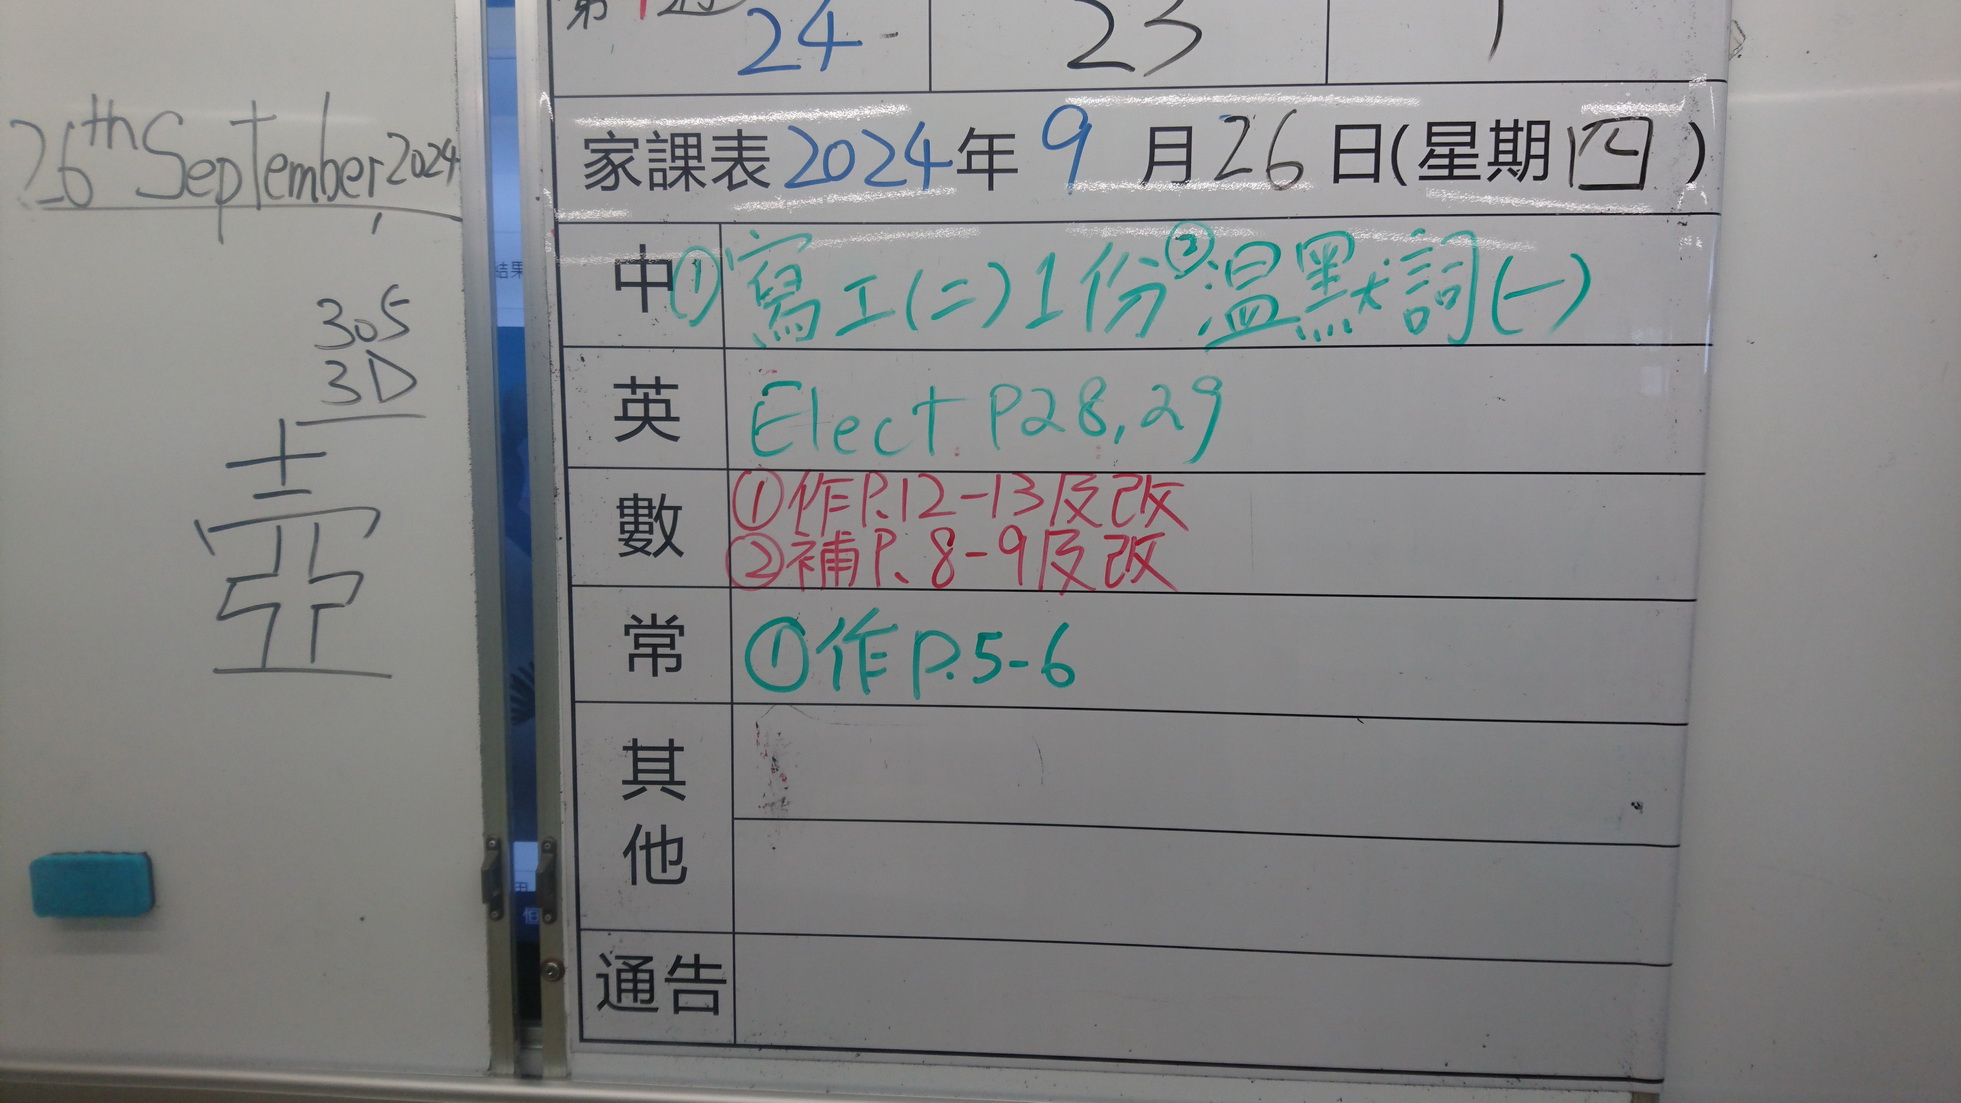 第1週
24
23
1
家課表2024年9月26日(星期四)
中 ①寫工(二)1份②溫默詞(一)
英 Elect P28,29
數 ①作P.12-13及改
②補P.8-9及改
常 ①作P.5-6
其他
通告
26th September, 2024
305
3D
結果